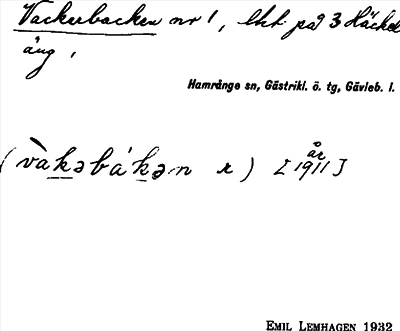 Vackerbacken nr 1, lht på 3 Häcked
äng,
Hamrånge sn, Gästrikl. ö. tg, Gävleb. l.
(vàkəbákən r) [år 1911]
EMIL LEMHAGEN 1932